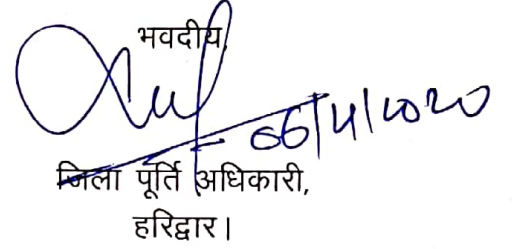 भवदीय,
06/4/2020
जिला पूर्ति अधिकारी,
हरिद्वार।